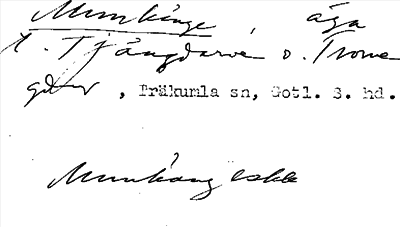 Munkänge, äga
t. Tjängdarve o. Trome
gdar, Träkumla sn, Gotl. S. hd.
Munkäng